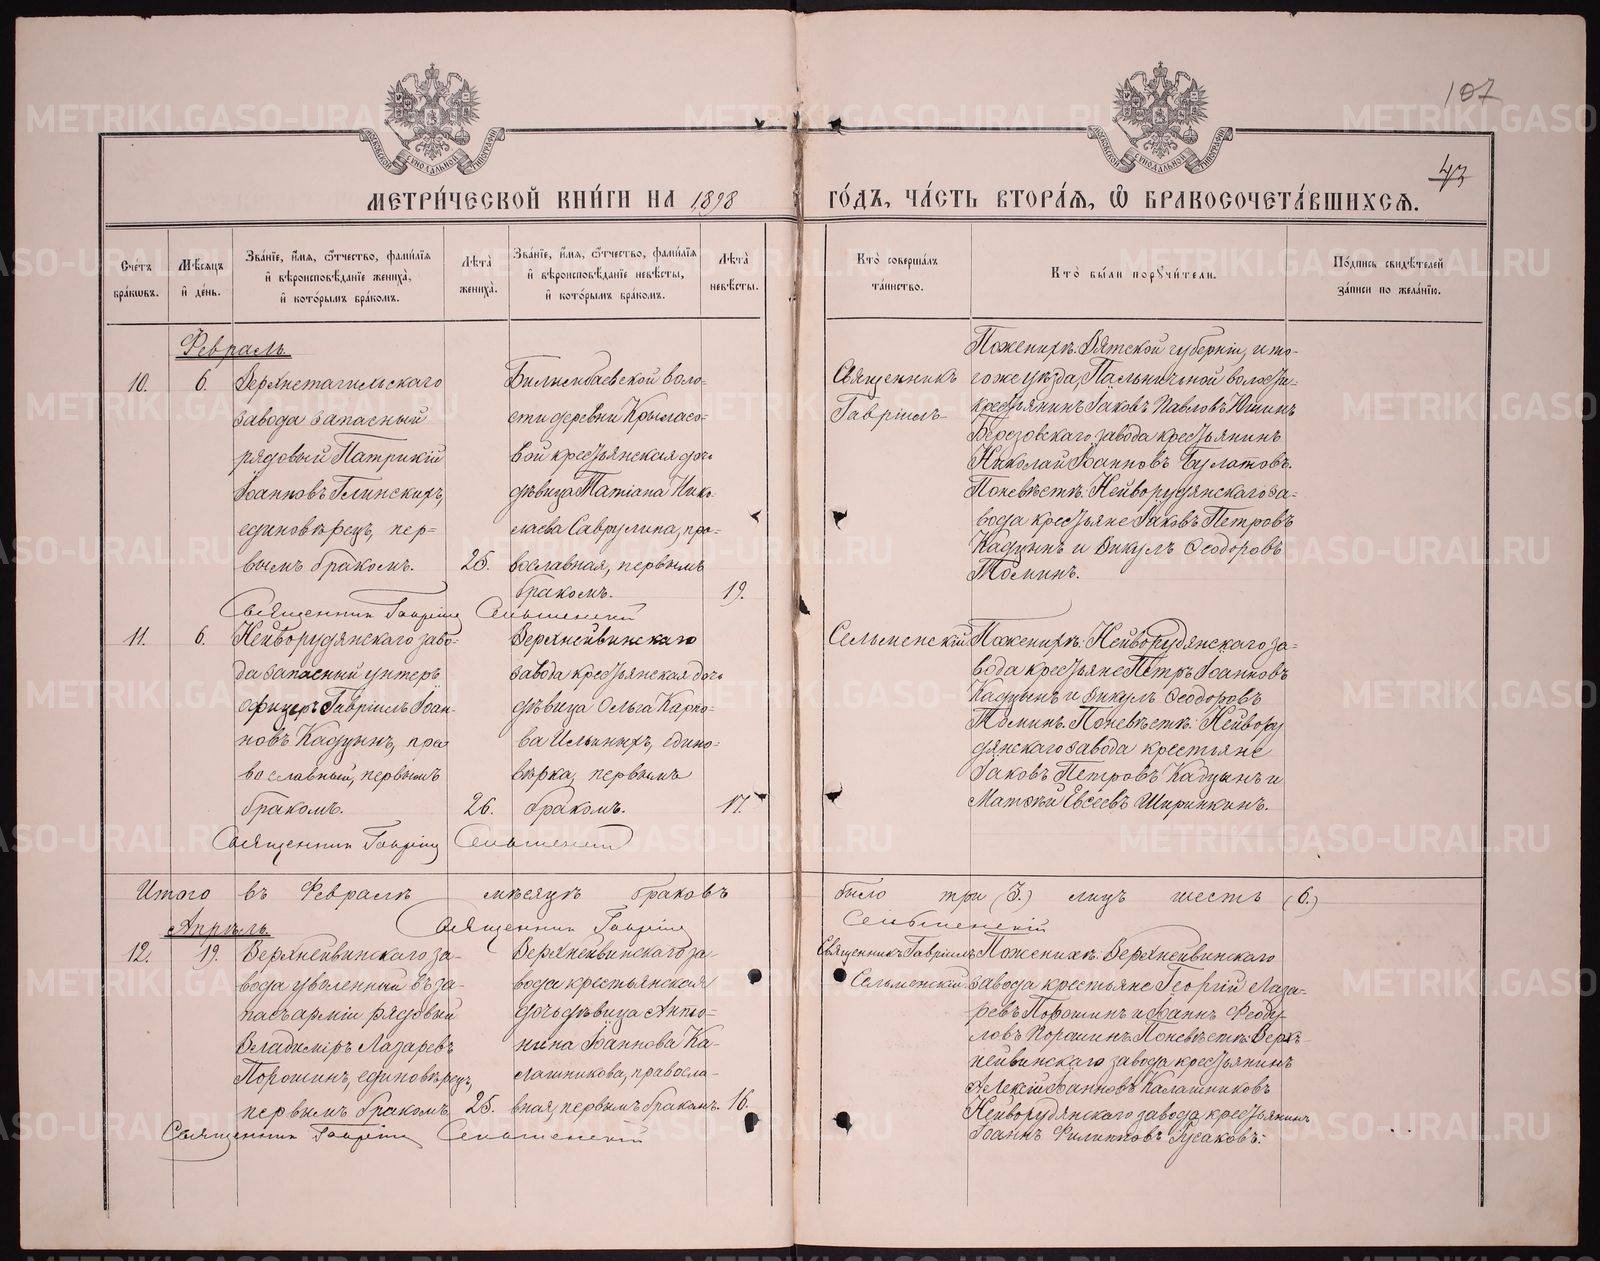 107
43
МЕТРИ́ЧЕСКОЙ КНИ́ГИ НА 1898 ГО́ДЪ, ЧА́СТЬ ВТОРА́Я, Ѡ БРАКОСОЧЕТА́ВШИХСЯ.
Сче́тъ бра́кѡвъ.
Мѣ́сяцъ и҆ де́нь.
Зва́нїе, и҆́мя, ѻ҆́тчество, фами́лїя
и҆ вѣроисповѣ́данїе жениха̀,
и҆ кото́рымъ бра́комъ.
Лѣта̀ жениха̀.
Зва́нїе, и҆́мя, ѻ҆́тчество, фами́лїя
и҆ вѣроисповѣ́данїе невѣ́сты,
и҆ кото́рымъ бра́комъ.
Лѣта̀ невѣ́сты.
Кто̀ соверша́лъ та́инство.
Кто̀ бы́ли порꙋчи́тели.
По́дпись свидѣ́телей за́писи по жела́нїю.
Февраль
10.
6.
Верхнетагильскаго
завода запасный
рядовый Патрикій
Іоанновъ Глинскихъ,
единовѣрецъ, пер-
вымъ бракомъ.
25.
Билимбаевской воло-
сти деревни Крыласо-
вой крестьянская дочь
дѣвица Татіана Нико-
лаева Саврулина, пра-
вославная, первымъ
бракомъ.
19.
Священникъ
Гавріилъ
По женихѣ: Вятской губерніи, и то-
гоже уѣзда, Пальничной волости
крестьянинъ Іаковъ Павловъ Юшинъ
Березовскаго завода крестьянинъ
Николай Іоанновъ Булатовъ.
По невѣстѣ: Нейворудянскаго за-
вода крестьяне Іаковъ Петровъ
Кадцынъ и Викулъ Ѳеодоровъ
Томинъ.
Священникъ Гавріилъ Сельменскій
11.
6.
Нейворудянскаго заво-
да запасный унтеръ
офицеръ Гавріилъ Іоан-
новъ Кадцынъ, пра
вославный, первымъ
бракомъ.
26.
Верхнейвинскаго
завода крестьянская дочь
дѣвица Ольга Карпо-
ва Ильиныхъ, едино-
вѣрка, первымъ
бракомъ.
17.
Сельменскій
По женихѣ: Нейворудянскаго за-
вода крестьяне Петръ Іоанновъ
Кадцынъ и Викулъ Ѳеодоровъ
Томинъ. По невѣстѣ: Нейвору
дянскаго завода крестьяне
Іаковъ Петровъ Кадцынъ и
Матѳій Евсеевъ Ширинкинъ.
Священникъ Гавріилъ Сельменскій
Итого въ Февралѣ мѣсяцѣ браковъ было три (3.) лицъ шесть (6.)
Священникъ Гавріилъ Сельменскій
Апрѣль
12.
19.
Верхнейвинскаго за-
вода уволенный въ за-
пасъ арміи рядовый
Владиміръ Лазаревъ
Порошинъ, единовѣрецъ,
первымъ бракомъ.
25.
Верхнейвинскаго за-
вода крестьянская
дочь дѣвица Анто-
нина Іоаннова Ка-
лашникова, правосла-
вная, первымъ бракомъ.
16.
Священникъ Гавріилъ
Сельменскій
По женихѣ: Верхнейвинскаго
завода крестьяне Георгій Лаза-
ревъ Порошинъ и Іоаннъ Ѳеоду-
ловъ Порошинъ. По невѣстѣ: Верх-
нейвинскаго завода крестьянинъ
Алексій Іоанновъ Калашниковъ
Нейворудянскаго завода крестьянинъ
Іоаннъ Филипповъ Русаковъ.
Священникъ Гавріилъ Сельменскій
METRIKI.GASO-URAL.RU